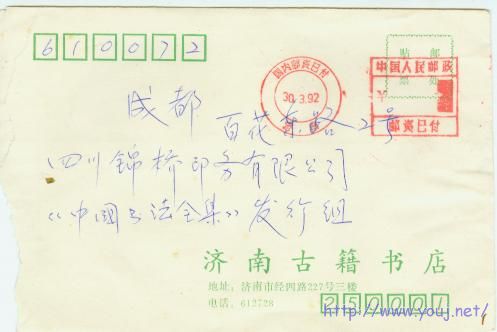 610072
贴 邮
票 处
中国人民邮政
国内邮资已付
30.3.92
¥
邮资已付
成都
百花东路2号
四川锦桥印务有限公司
《中国书法全集》发行组
济南古籍书店
地址:济南市经四路227号三楼
电话:612728
250001
http://www.youj.net/